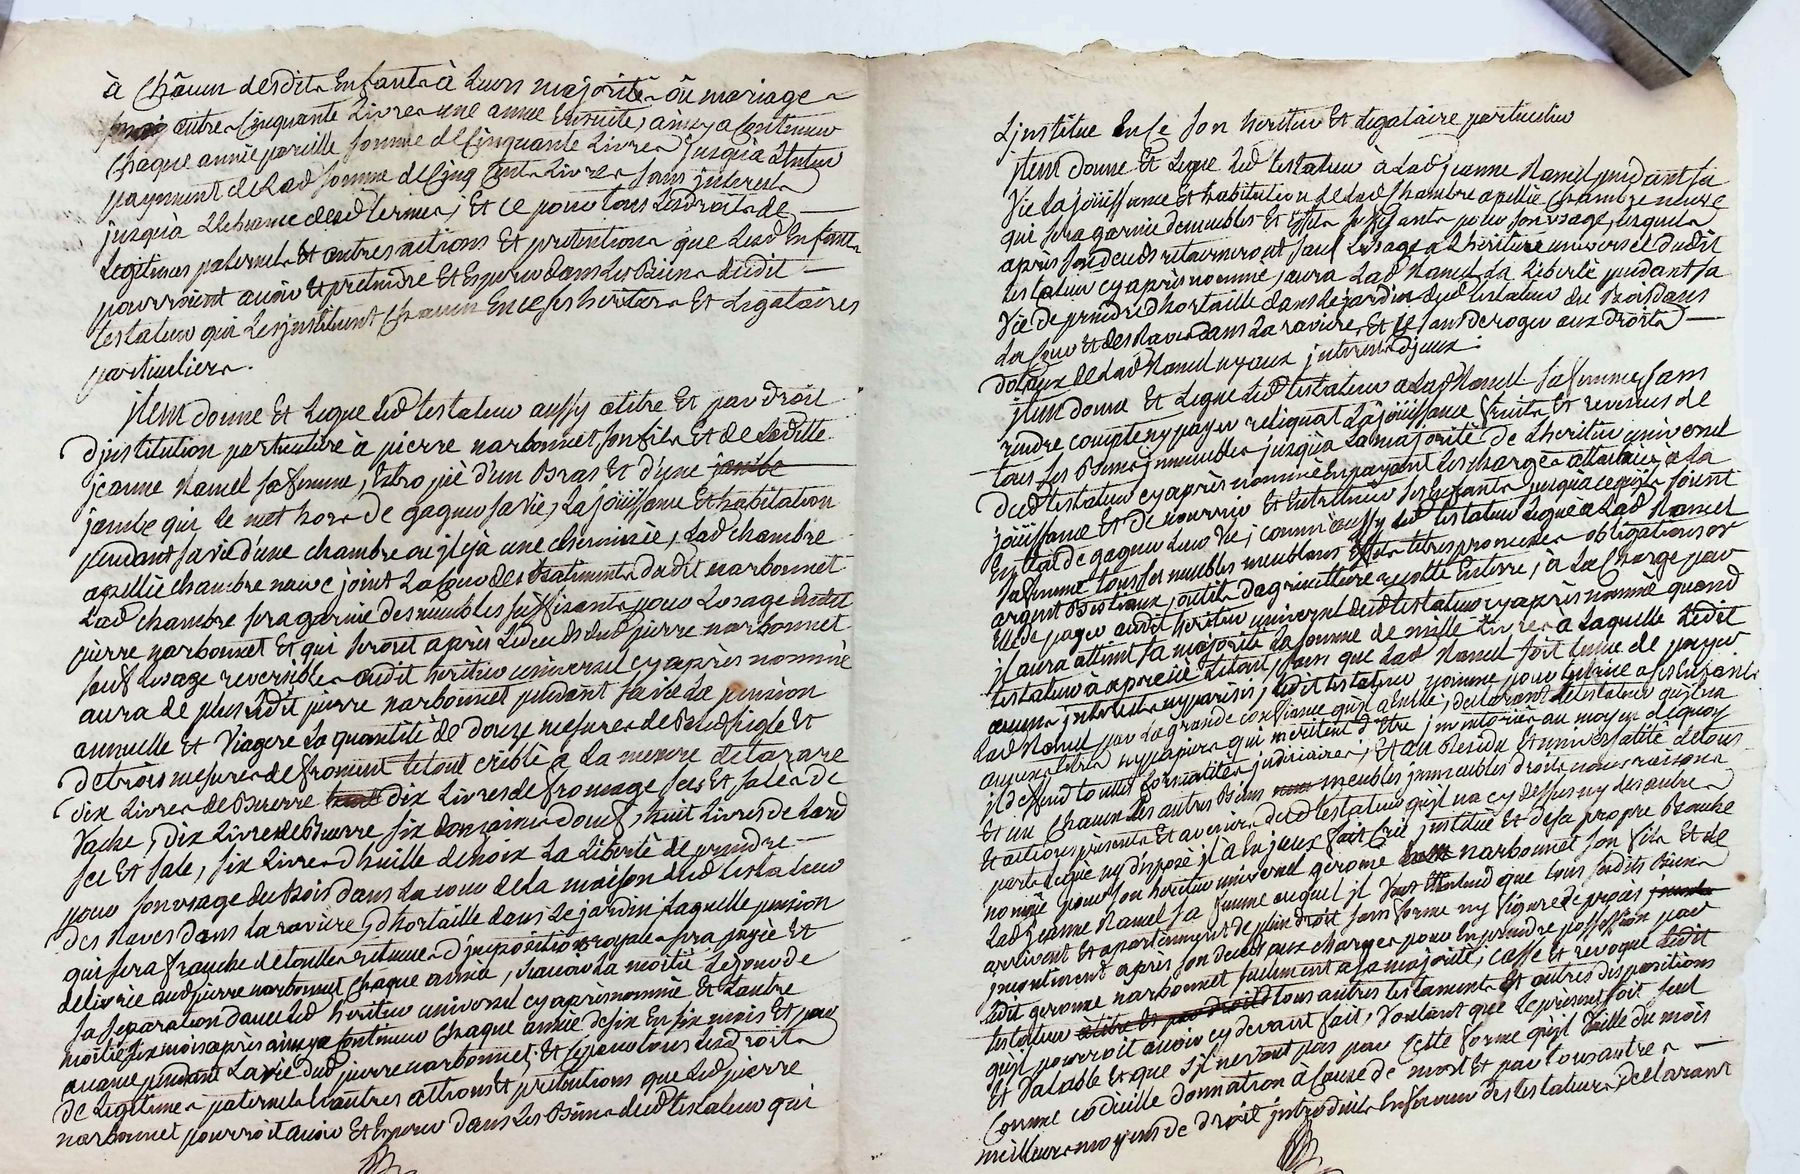 à Châcun desdits Enfants à Leurs majorité oû mariage
autres Cinquante Livres une année Ensuite, ainsy a Continuer
Chaque année pareille somme de Cinquante Livres jusqua L'entier
payement de Lad somme de Cinq Cents Livres sans jnterests
jusquà L'echeance desd termes; Et ce pour tous Lesdroits de
Legitimes paternels Et autres actions Et pretentions que Lesd Enfants
pourroient avoir Et pretendre Et Esperer dans Les Biens dudit
testateur qui Les jnstituent Chacun En ce ses heritiers Et Legataires
particuliers.
jtem donne Et Legue Led testateur aussy atitre Et par droit
djnstitution particuliere à pierre narbonnet son fils Et de Ladite
jeanne Hamel sa femme, Estropié d'un Bras Et d'une jambe
jambe qui Le met hors de gagner sa vie, La joüissance Et habitation
pendant sa vie d'une chambre ou jl y à une cheminée, Lad chambre
apellée chambre neuve joint La Cour des Batiments dudit narbonnet
Lad chambre sera garnie de meubles suffizants pour Lusage dudit
pierre narbonnet Et qui seront après Ledeceds dud pierre narbonnet
sauf Lusage reversibles audit heritier universel cy après nommé
aura de plus Ledit pierre narbonnet pendant sa vie La pension
annuelle Et Viagere La quantité de Douze mesures de Bled seigle Et
de trois mesures de froment le tout criblé a La mesure de tarare
dix Livres de Beurre dix Livres de fromage secs Et salé de
Vache, dix Livres de Beurre six douzaines d'oeuf, huit Livres de Lard
sec Et salé, six Livres d'huille de noix La Liberté de prendre
pour son usage du Bois dans La cour de La maison dud testateur
des Raves dans La raviere, d'hortaille dans Le jardin Laquelle pension
qui sera franche de toutes retenues d'jmpositions royales sera payée Et
delivrée aud pierre narbonnet Chaque année, sçavoir La moitié Le jour de
sa separation d'avec Led heritier universel cy après nommé Et L'autre
moitié six mois apres ainsy a Continuer Chaque année de six En six mois Et par
avance pendant La vie dud pierre narbonnet; Et ce pour tous Lesd droits
de Legitimes paternels Et autres actions Et pretentions que Led pierre
narbonnet pourroit avoir Et Esperer dans Les Biens dud testateur qui
Ljnstitue En Ce son heritier Et Legataire particulier
jtem donne Et Legue Led testateur à Lad jeanne Hamel pendant sa
Vie La joüissance Et habitation de Lad Chambre apellée Chambre neuve
qui sera garnie de meubles Et Effets suffisants pour son usage, Lesquels
après son deceds retourneront sauf Lusage a L'heritier universel dudit
testateur cy après nommé, aura Lad Hamel La Liberté pendant sa
Vie de prendre d'hortaille dans Le jardin dud testateur du Bois dans
La Cour Et des Raves dans La raviere, Et ce sans deroger aux droits
dotaux de Lad Hamel ny aux jnterets d'jceux.
jtem donne Et Legue Led testateur a Lad Hamel sa femme, sans
rendre compte ny payer reliquat La joüissance fruits Et revenus de
tous ses Biens jmmeubles jusquà La majorité de L'heritier universel
dud testateur cy après nommé En payant Les charges attachées à La
joüissance Et de nourrir Et Entretenir ses Enfants jusquà ce qu'jls soient
En Etat de gagner Leur Vie; comm'aussy Led testateur Legue à Lad Hamel
sa femme tous ses meubles meublans Effets titres promesses obligations or
argent Bestiaux, outils d'agriculture recolte En terre; à La Charge par
Elle de payer audit heritier universel dud testateur cy après nommé quand
jl aura atteint sa majorité La somme de mille Livres a Laquelle Ledit
testateur à aprecié Le tout, sans que Lad Hamel soit tenue de payer
aucuns jnterests ny parisis, Ledit testateur nomme pour tutrice a ses Enfants
Lad Hamel par La grande confiance qu'jl a En Elle; declarant Le testateur qu'jl n'a
aucuns titres ny papiers qui méritent d'être jnventoriés au moyen dequoy
jl deffend toutes formalités judiciaires; Et au Residu Et universalité de tous
Et un Chacun Les autres Biens meubles jmmeubles droits noms raisons
Et actions presents Et avenirs dud testateur qu'jl na cy dessus ny des autres
parts Legué ny disposé jl a En jceux fait Créé jnstitue Et de sa propre Bouche
nommé pour son heritier universel gerome narbonnet son fils Et de
Lad jeanne Hamel sa femme auquel jl Veut Entend que tous sesdits Biens
arrivent Et apartiennent de plein droit sans forme ny figure de procès
jncontinent après son deceds aux charges pour En prendre possession par
Ledit gerome narbonnet seulement a sa majorité, casse Et revoque Ledit
testateur tous autres testaments Et autres dispositions
qu'jl pourroit avoir cy devant fait, Voulant que Le present soit seul
Et Valable Et que s'jl ne vaut pas par Cette forme qu'jl Vaille du moins
Comme codicille donnation à Cause de mort Et par tous autres
meilleurs moyens de droit jntroduits En faveur des testateurs, declarant